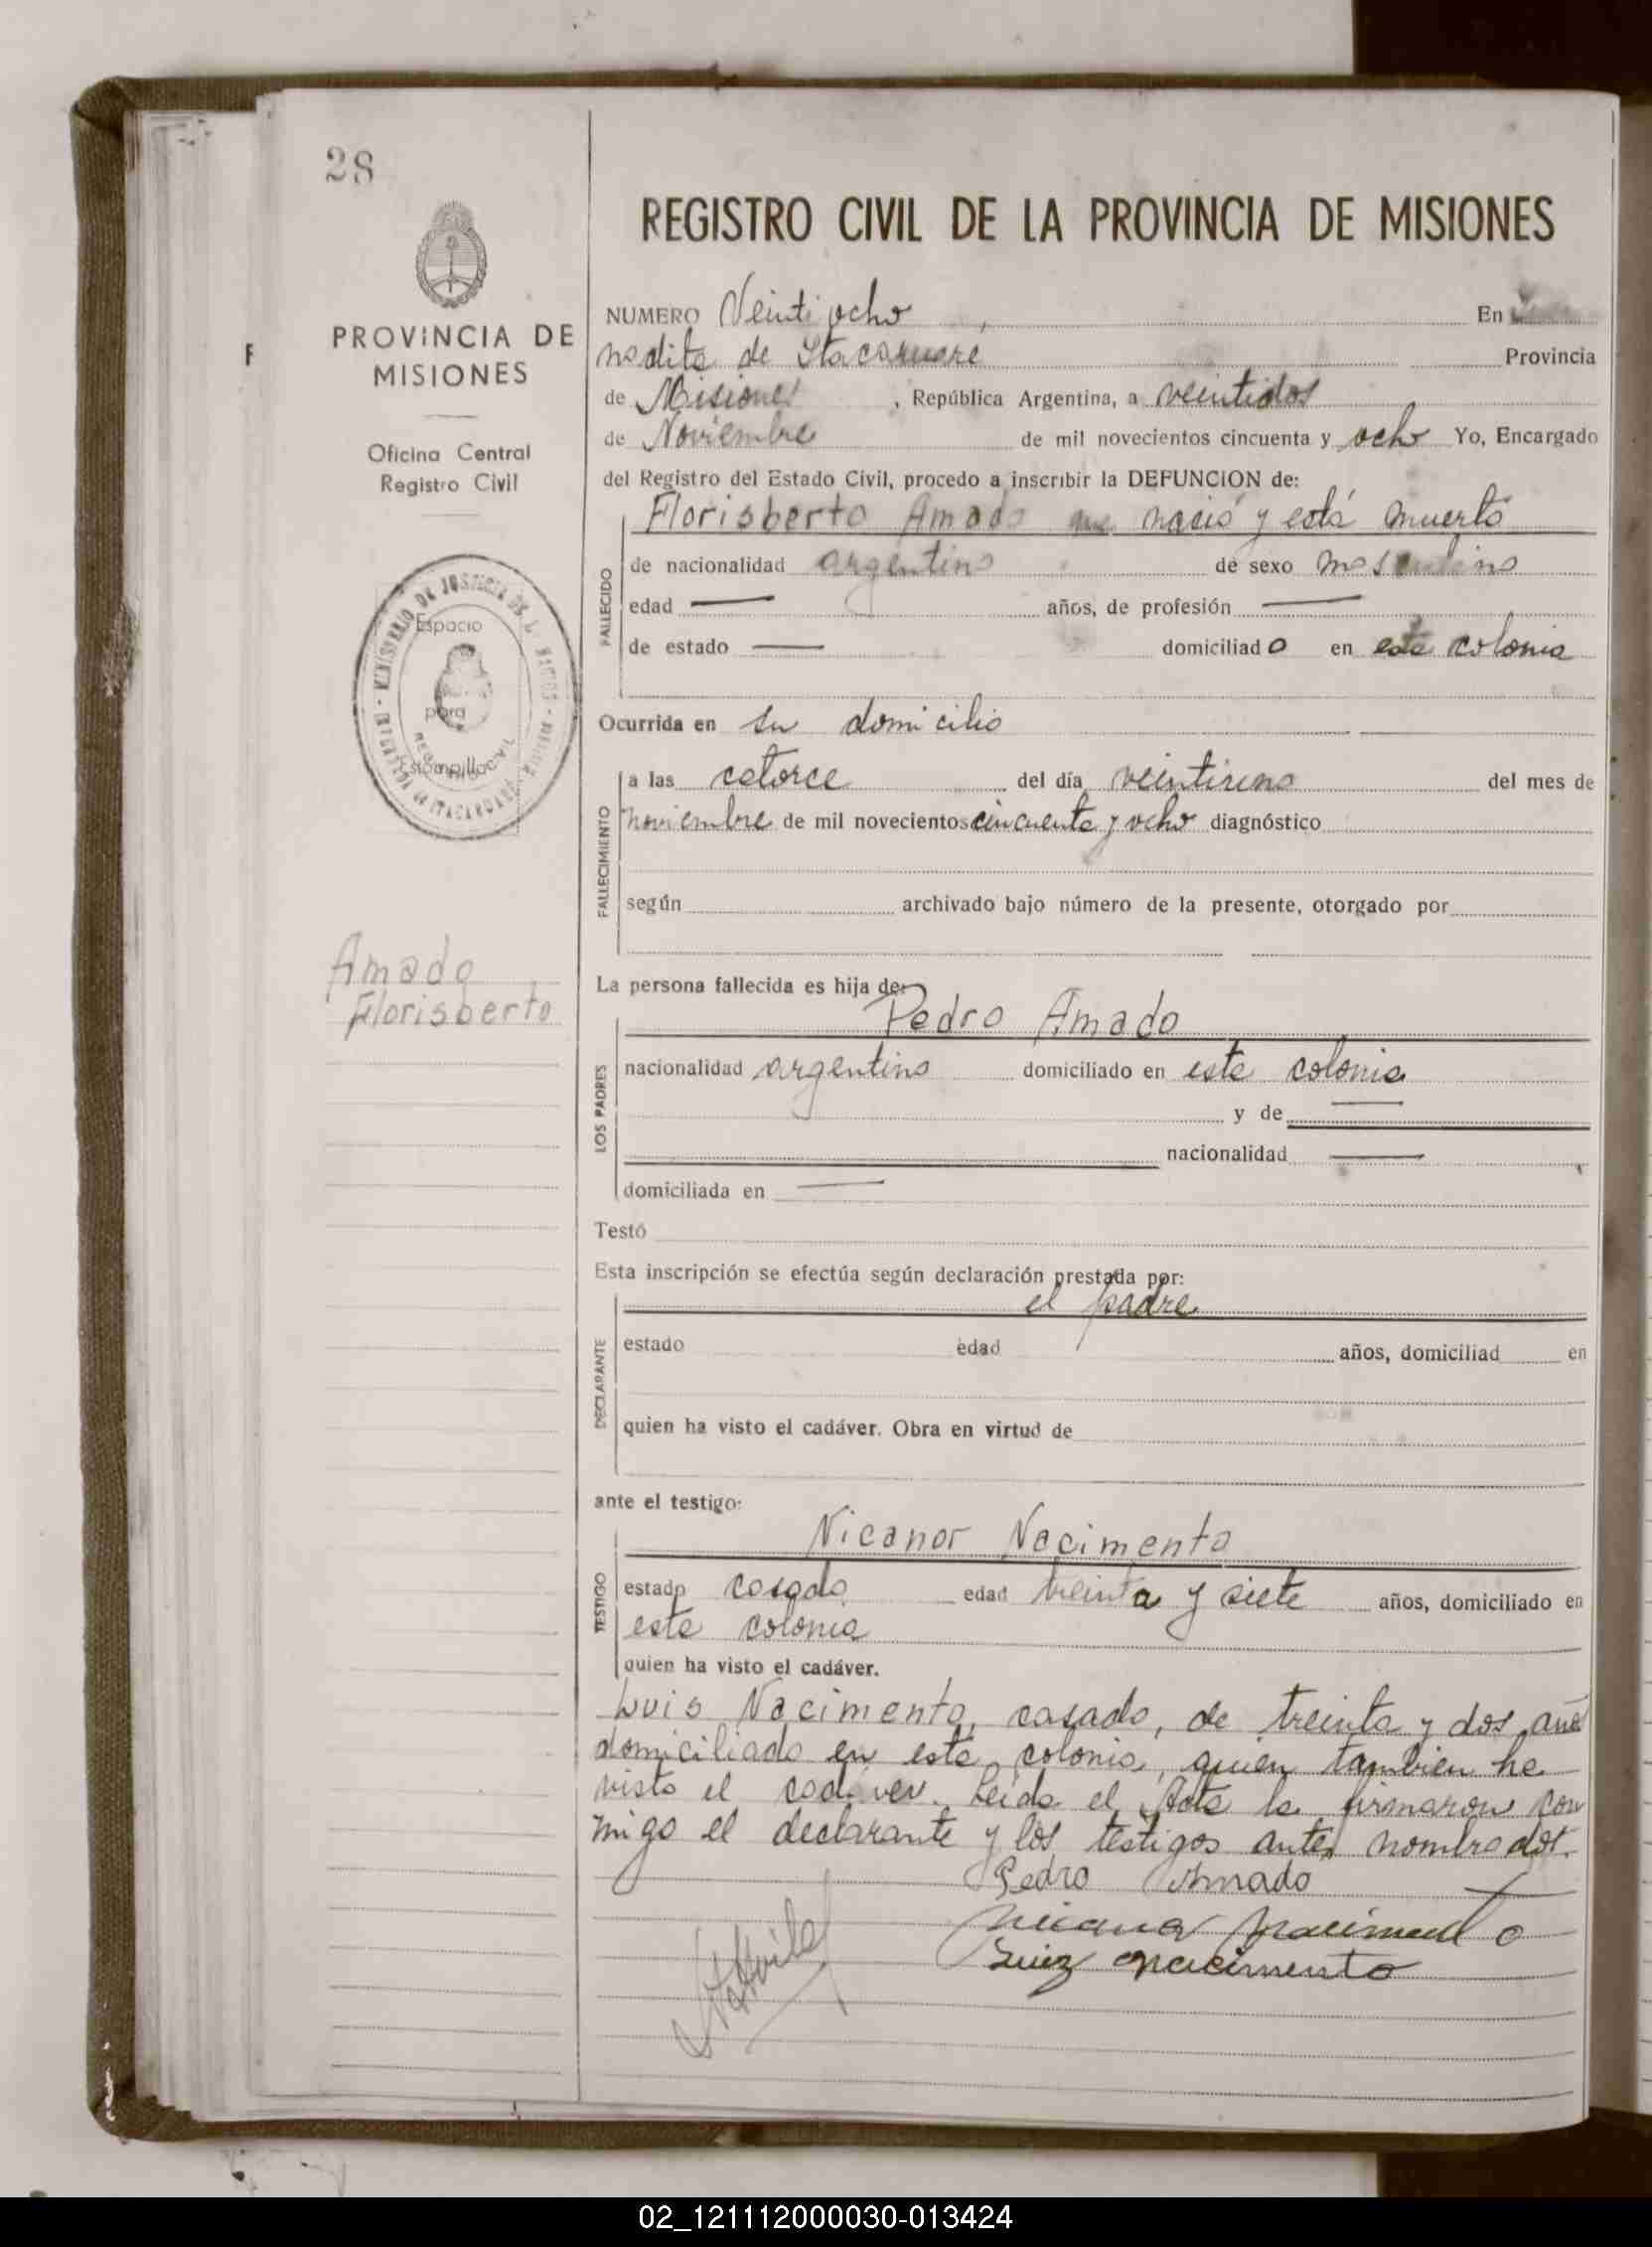 28
PROVINCIA DE
MISIONES
Oficina Central
Registro Civil
Espacio
para
Estampilla
MINISTERIO DE JUSTICIA DE LA
REGISTRO CIVIL
ITACARUARE
Amado
Florisberto
F
REGISTRO CIVIL DE LA PROVINCIA DE MISIONES
NUMERO Veinti ocho En
nadita de Itacaruaré Provincia
de Misiones, República Argentina, a veintidos
de Noviembre de mil novecientos cincuenta y ocho Yo, Encargado
del Registro del Estado Civil, procedo a inscribir la DEFUNCION de:
Florisberto Amado que nació y está muerto
FALLECIDO
de nacionalidad argentino de sexo masculino
edad — años, de profesión —
de estado — domiciliado en esta colonia
Ocurrida en su domicilio
FALLECIMIENTO
a las catorce del día veintiuno del mes de
noviembre de mil novecientos cincuenta y ocho diagnóstico
según archivado bajo número de la presente, otorgado por
La persona fallecida es hija de:
Pedro Amado
LOS PADRES
nacionalidad argentino domiciliado en esta colonia
y de —
nacionalidad —
domiciliada en —
Testó
Esta inscripción se efectúa según declaración prestada por:
el padre
DECLARANTE
estado edad años, domiciliad en
quien ha visto el cadáver. Obra en virtud de
ante el testigo:
Nicanor Nacimento
TESTIGO
estado casado edad treinta y siete años, domiciliado en
esta colonia
quien ha visto el cadáver.
Luis Nacimento, casado, de treinta y dos año
domiciliado en esta colonia, quien tambien ha
visto el cadáver. Leida el Acta la firmaron con
migo el declarante y los testigos antes nombrados.
Pedro Amado
Nicanor Nacimento
Luiz Nacimento
02_121112000030-013424